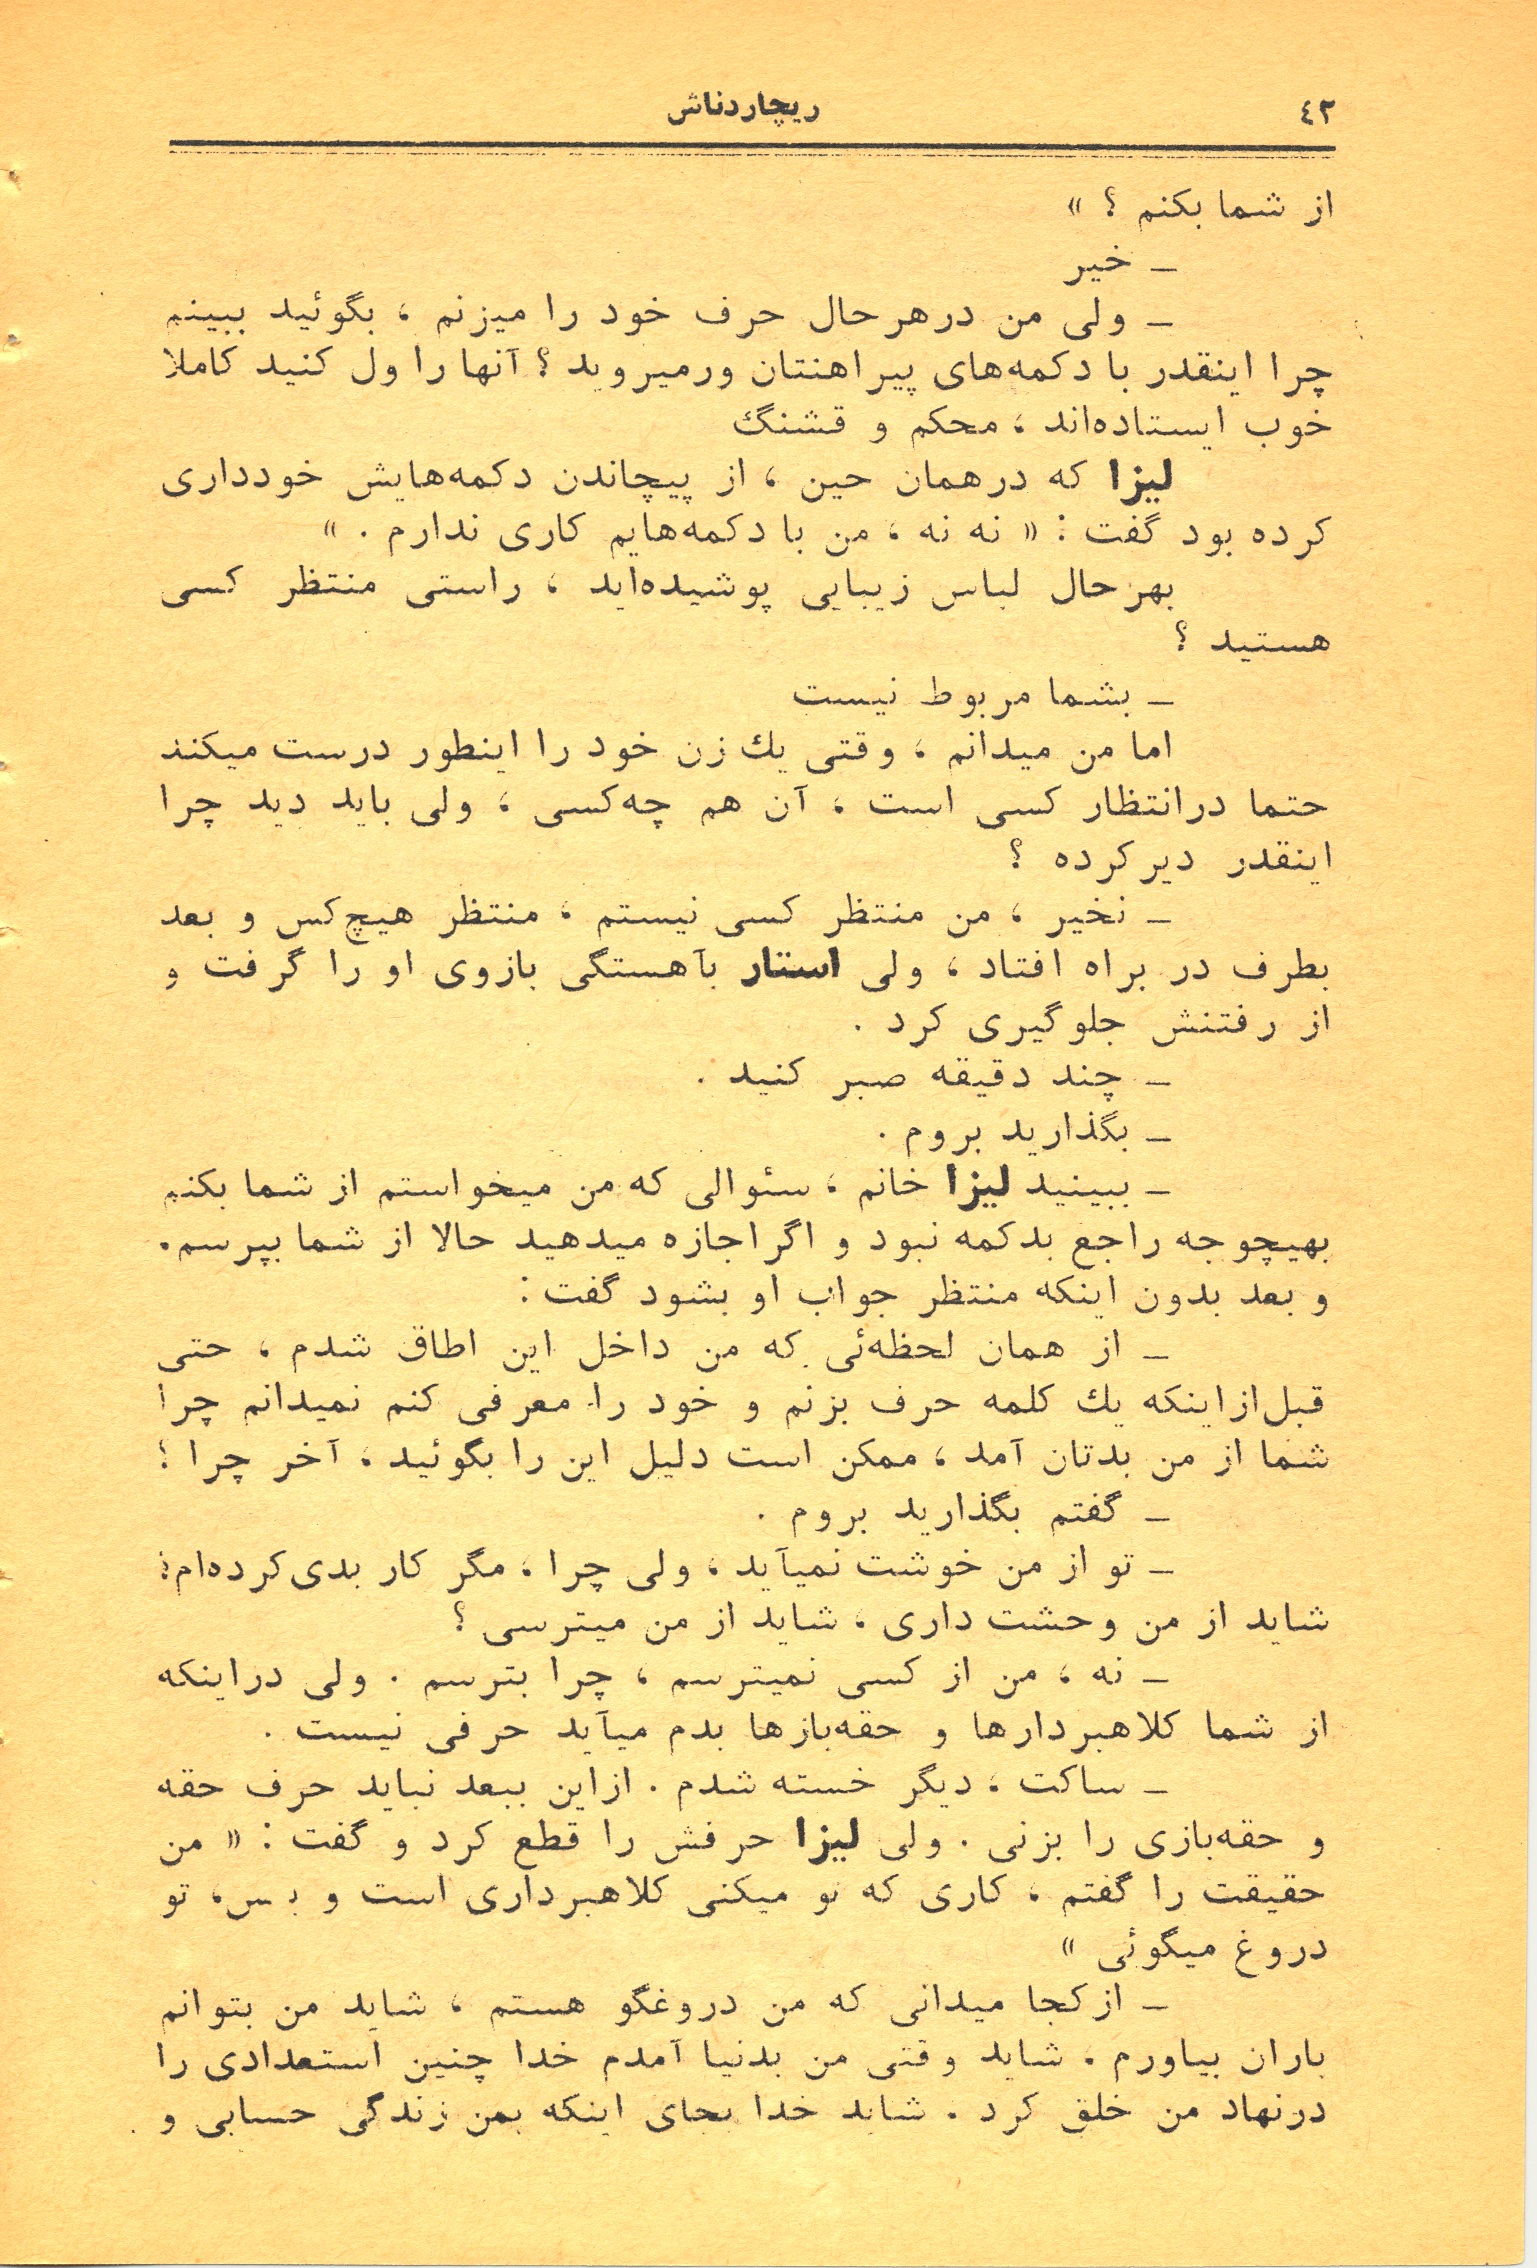 ٤٢
ریچاردناش
از شما بکنم ؟ »
ـ خیر
ـ ولی من درهرحال حرف خود را میزنم ، بگوئید ببینم
چرا اینقدر با دکمه‌های پیراهنتان ورمیروید ؟ آنها را ول کنید کاملا
خوب ایستاده‌اند ، محکم و قشنگ
لیزا که درهمان حین ، از پیچاندن دکمه‌هایش خودداری
کرده بود گفت : « نه نه ، من با دکمه‌هایم کاری ندارم . »
بهرحال لباس زیبایی پوشیده‌اید ، راستی منتظر کسی
هستید ؟
ـ بشما مربوط نیست
اما من میدانم ، وقتی یك زن خود را اینطور درست میکند
حتما درانتظار کسی است ، آن هم چه‌کسی ، ولی باید دید چرا
اینقدر دیرکرده ؟
ـ نخیر ، من منتظر کسی نیستم ، منتظر هیچ‌کس و بعد
بطرف در براه افتاد ، ولی استار بآهستگی بازوی او را گرفت و
از رفتنش جلوگیری کرد .
ـ چند دقیقه صبر کنید .
ـ بگذارید بروم .
ـ ببینید لیزا خانم ، سئوالی که من میخواستم از شما بکنم
بهیچوجه راجع بدکمه نبود و اگر اجازه میدهید حالا از شما بپرسم.
و بعد بدون اینکه منتظر جواب او بشود گفت :
ـ از همان لحظه‌ئی که من داخل این اطاق شدم ، حتی
قبل‌ازاینکه یك کلمه حرف بزنم و خود را معرفی کنم نمیدانم چرا
شما از من بدتان آمد ، ممکن است دلیل این را بگوئید ، آخر چرا ؟
ـ گفتم بگذارید بروم .
ـ تو از من خوشت نمیآید ، ولی چرا ، مگر کار بدی‌کرده‌ام؟
شاید از من وحشت داری ، شاید از من میترسی ؟
ـ نه ، من از کسی نمیترسم ، چرا بترسم . ولی دراینکه
از شما کلاهبردارها و حقه‌بازها بدم میآید حرفی نیست .
ـ ساکت ، دیگر خسته شدم . ازاین ببعد نباید حرف حقه
و حقه‌بازی را بزنی . ولی لیزا حرفش را قطع کرد و گفت : « من
حقیقت را گفتم ، کاری که تو میکنی کلاهبرداری است و بس، تو
دروغ میگوئی »
ـ ازکجا میدانی که من دروغگو هستم ، شاید من بتوانم
باران بیاورم . شاید وقتی من بدنیا آمدم خدا چنین استعدادی را
درنهاد من خلق کرد . شاید خدا بجای اینکه بمن زندگی حسابی و